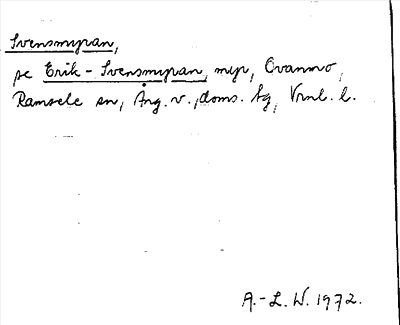 Svensmyran,
se Erik-Svensmyran, myr, Ovanmo,
Ramsele sn, Ång. v., doms. tg, Vrnl. l.
A.-L. W. 1972.